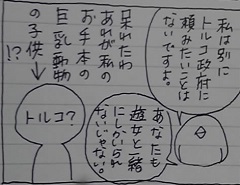 私は別に
トルコ政府に
頼みたいことは
ないですよ。
呆れたわ
あれが私の
お手本の
巨乳動物
の子供
!?
あなたも
遊女と結
にしかいられ
ないじゃない。
トルコ?